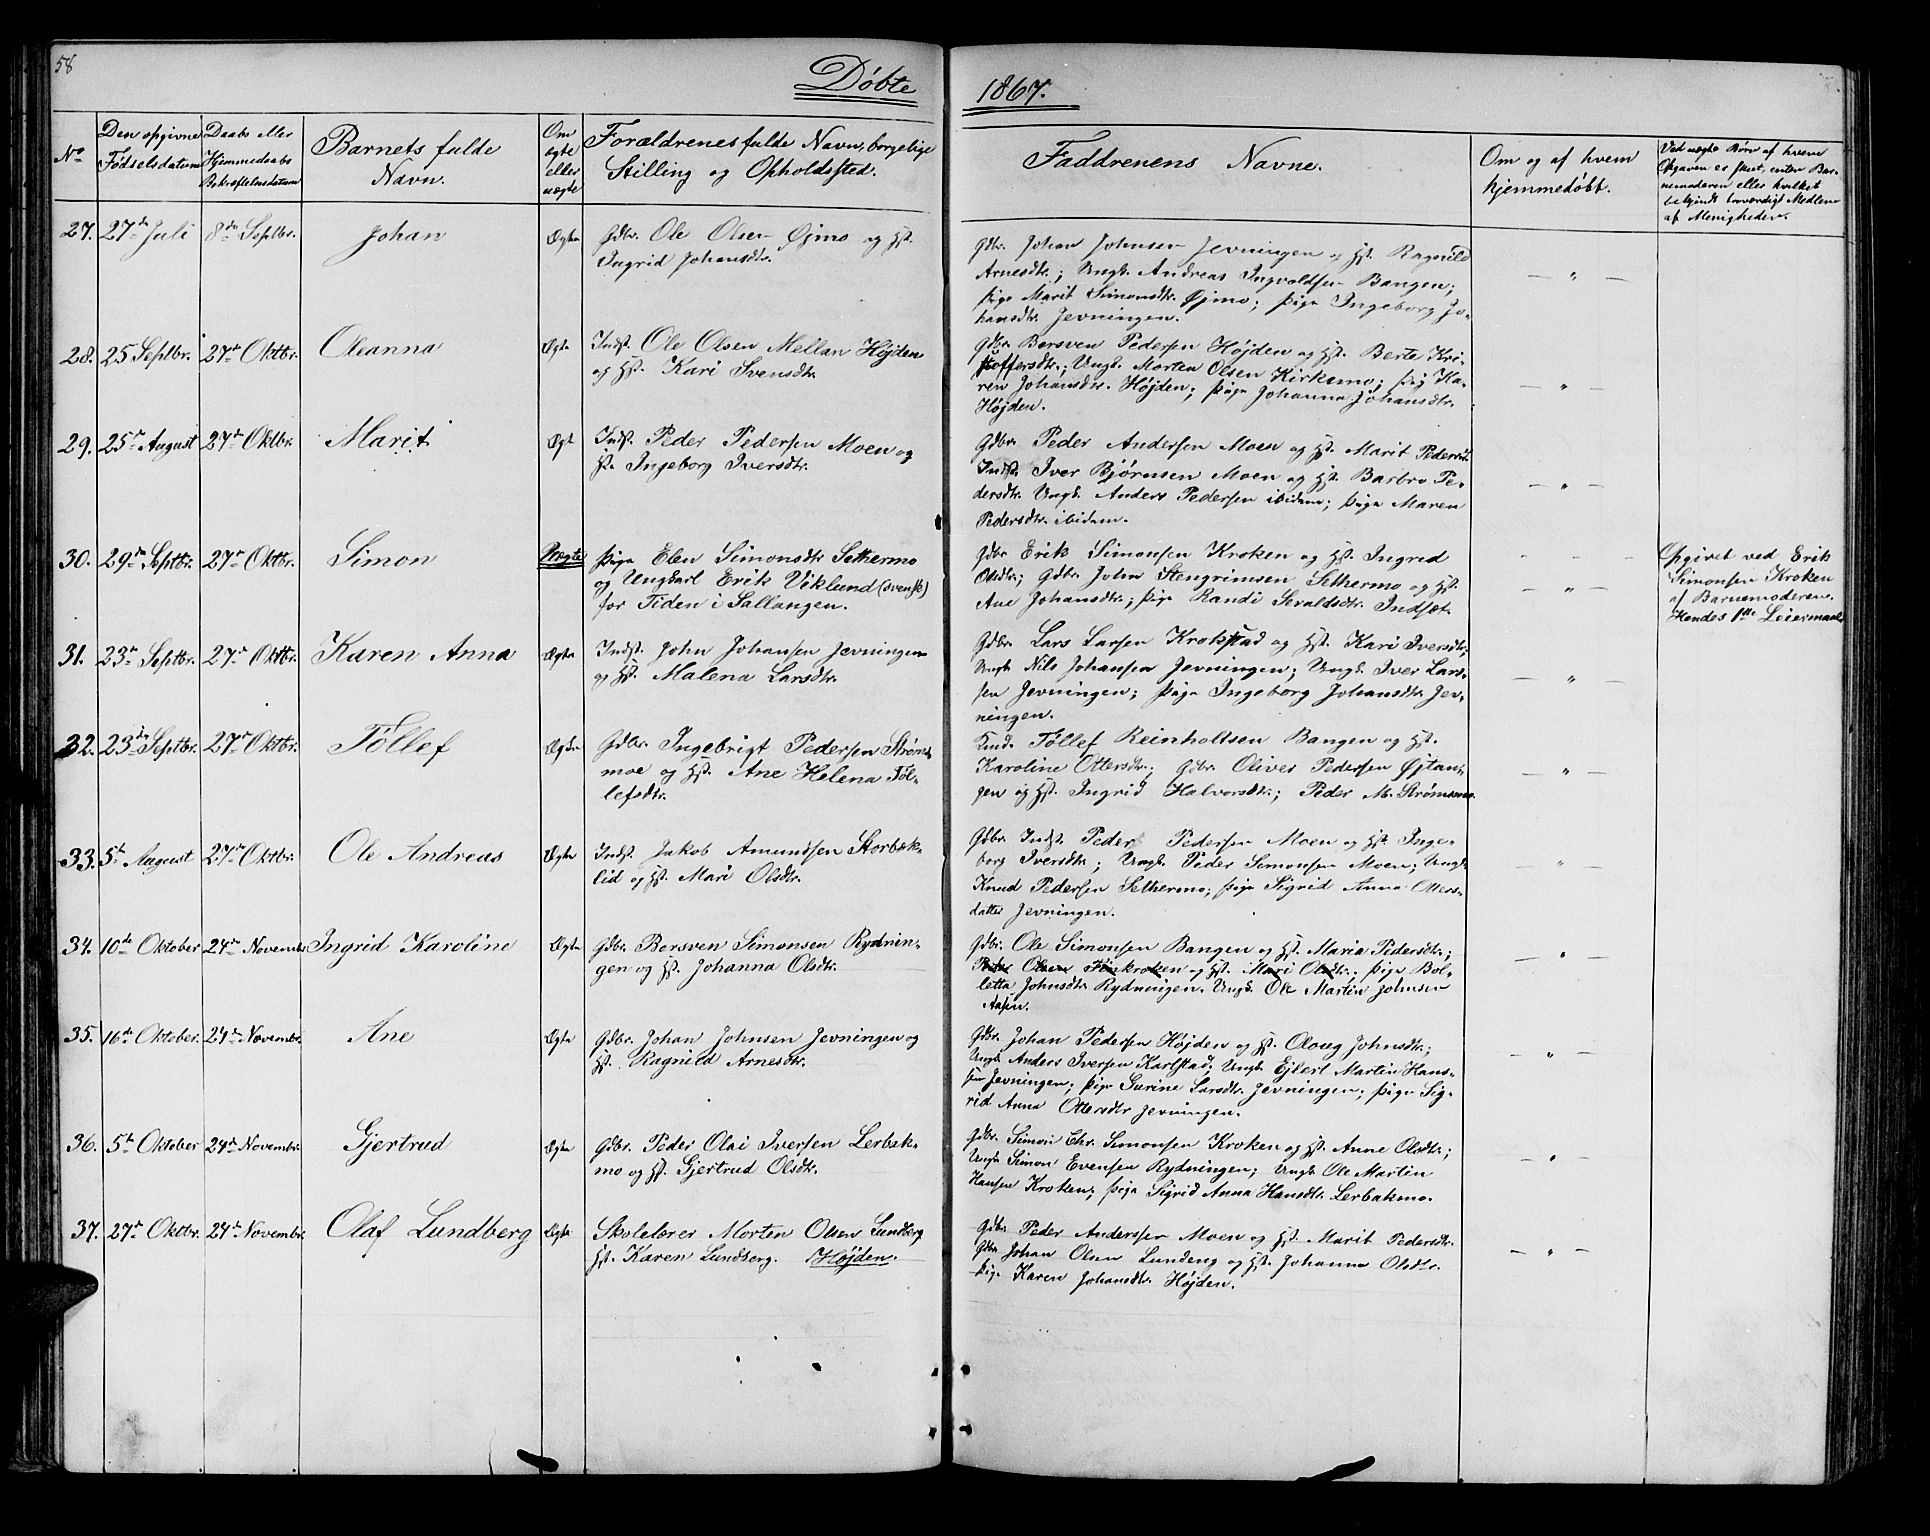 58
Døbte
1867.
No
Den opgivne Fødselsdatum
Daabs eller Hjemmedaabs Bekræftelsesdatum
Barnets fulde Navn.
Om ægte eller uægte
Forældrenes fulde Navn, borgelige Stilling og Opholdssted.
Faddrenens Navne.
Om og af hvem hjemmedøbt.
Ved uægte Børn af hvem Opgaven er skeet, enten Barnemoderen eller hvilket bekjendt troværdigt Medlem af Menigheden.
27. 27de Juli 8de Septbr. Johan Ægte
Gdbr. Ole Olsen Øjmo og Hst.
Ingrid Johansdtr.
Gdbr. Johan Johnsen Jevningen og Hst. Ragnild
Arnesdtr.; Ungk. Andreas Ingvoldsen Bangen;
Pige Marit Simonsdtr. Øjmo; Pige Ingeborg Jo-
hansdtr. Jevningen.
— " —
28. 25 Septbr. 27de Oktbr. Oleanna Ægte
Indst. Ole Olsen Mellan Højden
og Hst. Kari Svensdtr.
Gdbr. Bersven Pedersen Højden og Hst. Berte Kri-
stoffersdtr.; Ungk. Morten Olsen Kirkemo; Pig Ka-
ren Johansdtr. Højden; Pige Johanna Johansdtr.
Højden.
— " —
29. 25de August 27de Oktbr. Marit Ægt
Indst. Peder Pedersen Moen og
Hst. Ingeborg Iversdtr.
Gdbr. Peder Andersen Moen og Hst. Marit Pedersdt.
Indst. Iver Bjørnsen Moen og Hst. Barbro Pe-
dersdtr. Ungk. Anders Pedersen ibidem; Pige Maren
Pedersdtr. ibidem.
— " —
30. 29de Septbr. 27de Oktbr. Simon Uægte
Pige Elen Simonsdtr Sethermo
og Ungkarl Erik Viklund (svensk)
for Tiden i Sallangen.
Gdbr Erik Simonsen Kroken og Hst. Ingrid
Olsdtr; Gdbr. John Stengrimsen Sethermo og Hst.
Ane Johansdtr.; Pige Randi Sevaldsdtr. Indset.
— " —
Opgivet ved Erik
Simonsen Kroken
af Barnemoderen.
Hendes 1ste Leiermaal.
31. 23de Septbr. 27de Oktbr. Karen Anna Ægte
Indst. John Johansen Jevningen
og Hst. Malena Larsdtr.
Gdbr. Lars Larsen Krokstad og Hst. Kari Iversdtr;
Ungk Nils Johansen Jevningen; Ungk. Iver Lar-
sen Jevningen; Pige Ingeborg Johansdtr. Jev-
ningen.
— " —
32. 23de Septbr. 27de Oktbr. Töllef Ægte
Gdbr. Ingebrigt Pedersen Strøms-
moe og Hst. Ane Helena Töl-
lefsdtr.
Töllef Reinholtsen Bangen og Hst.
Karoline Ottersdtr.; Gdbr. Oliver Pedersen Øjtan-
gen og Hst. Ingrid Halvorsdtr.; Peder M. Strømsmo.
— " —
33. 5te August 27de Oktbr. Ole Andreas Ægte
Indst. Jakob Amundsen Storbæk-
lid og Hst. Mari Olsdtr.
Gdbr. Indst. Peder Pedersen Moen og Hst. Inge-
borg Iversdtr.; Ungk Peder Simonsen Moen; Ungk
Knud Pedersen Sethermo; Pige Sigrid Anna Otters-
datter Jevningen.
— " —
34. 10de Oktober 24de November Ingrid Karoline Ægte
Gdbr. Bersven Simonsen Rydnin-
gen og Hst. Johanna Olsdtr.
Gdbr. Ole Simonsen Bangen og Hst. Maria Pedersdtr.;
Peder Olsen Finkroken og Hst. Mari Olsdtr.; Pige Bol-
letta Johnsdtr. Rydningen. Ungk. Ole Martin Johnsen
Aasen.
— " —
35. 16de Oktober. 24de Novembr. Ane Ægte
Gdbr. Johan Johnsen Jevningen og
Hst. Ragnild Arnesdtr.
Gdbr. Johan Pedersen Højden og Hst. Oloug Johnsdtr.;
Ungk Anders Iversen Karlstad; Ungk Ejlert Martin Han-
sen Jevningen; Pige Gurine Larsdtr. Jevningen; Pige Sig-
rid Anna Ottersdtr Jevningen.
— " —
36. 5te Oktober 24de Novembr. Gjertrud Ægte
Gdbr. Peder Olai Iversen Lerbak-
mo og Hst. Gjertrud Olsdtr.
Gdbr. Simon Chr. Simonsen Kroken og Hst. Anne Olsdtr.;
Ungk Simon Evensen Rydningen; Ungk Ole Martin
Hansen Kroken; Pige Sigrid Anna Hansdtr. Lerbakmo.
— " —
37. 27de Oktbr. 24de Novembr. Olaf Lundberg Ægte
Skolelærer Morten Olsen Lundberg
Hst. Karen Lundberg. Højden.
Gdbr. Peder Anderssen Moen og Hst. Marit Pedersdtr.
Gdbr Johan Olsen Lundeng og Hst. Johanna Olsdtr.
Pig. Karen Johansdtr. Højden.
— " —